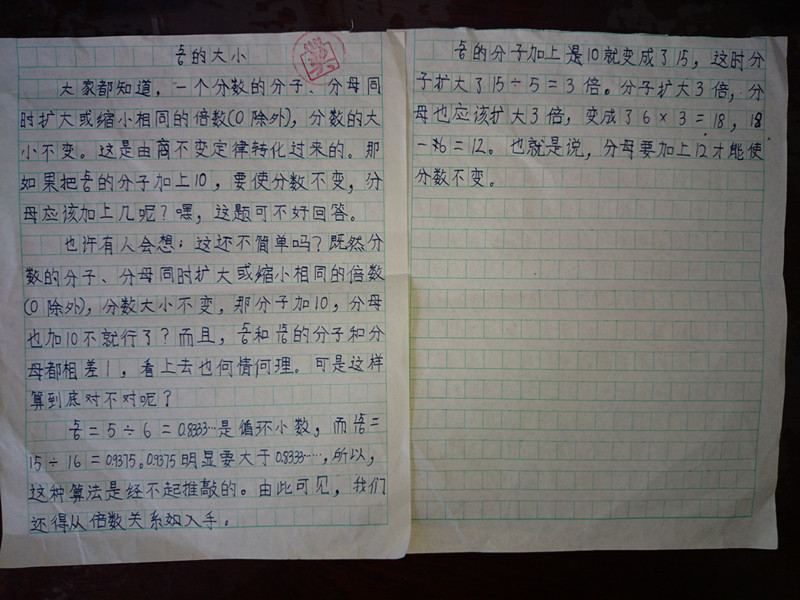 5/6的大小
奖
大家都知道，一个分数的分子、分母同
时扩大或缩小相同的倍数(0除外)，分数的大
小不变。这是由商不变定律转化过来的。那
如果把5/6的分子加上10，要使分数不变，分
母应该加上几呢？嘿，这题可不好回答。
也许有人会想：这还不简单吗？既然分
数的分子、分母同时扩大或缩小相同的倍数
(0除外)，分数大小不变，那分子加10，分母
也加10不就行了？而且，5/6和15/16的分子和分
母都相差1，看上去也何情何理。可是这样
算到底对不对呢？
5/6=5÷6=0.8333…是循环小数，而15/16=
15÷16=0.9375。0.9375明显要大于0.8333……，所以，
这种算法是经不起推敲的。由此可见，我们
还得从倍数关系如入手。
5/6的分子加上是10就变成了15，这时分
子扩大了15÷5=3倍。分子扩大3倍，分
母也应该扩大3倍，变成了6×3=18，18
-6=12。也就是说，分母要加上12才能使
分数不变。